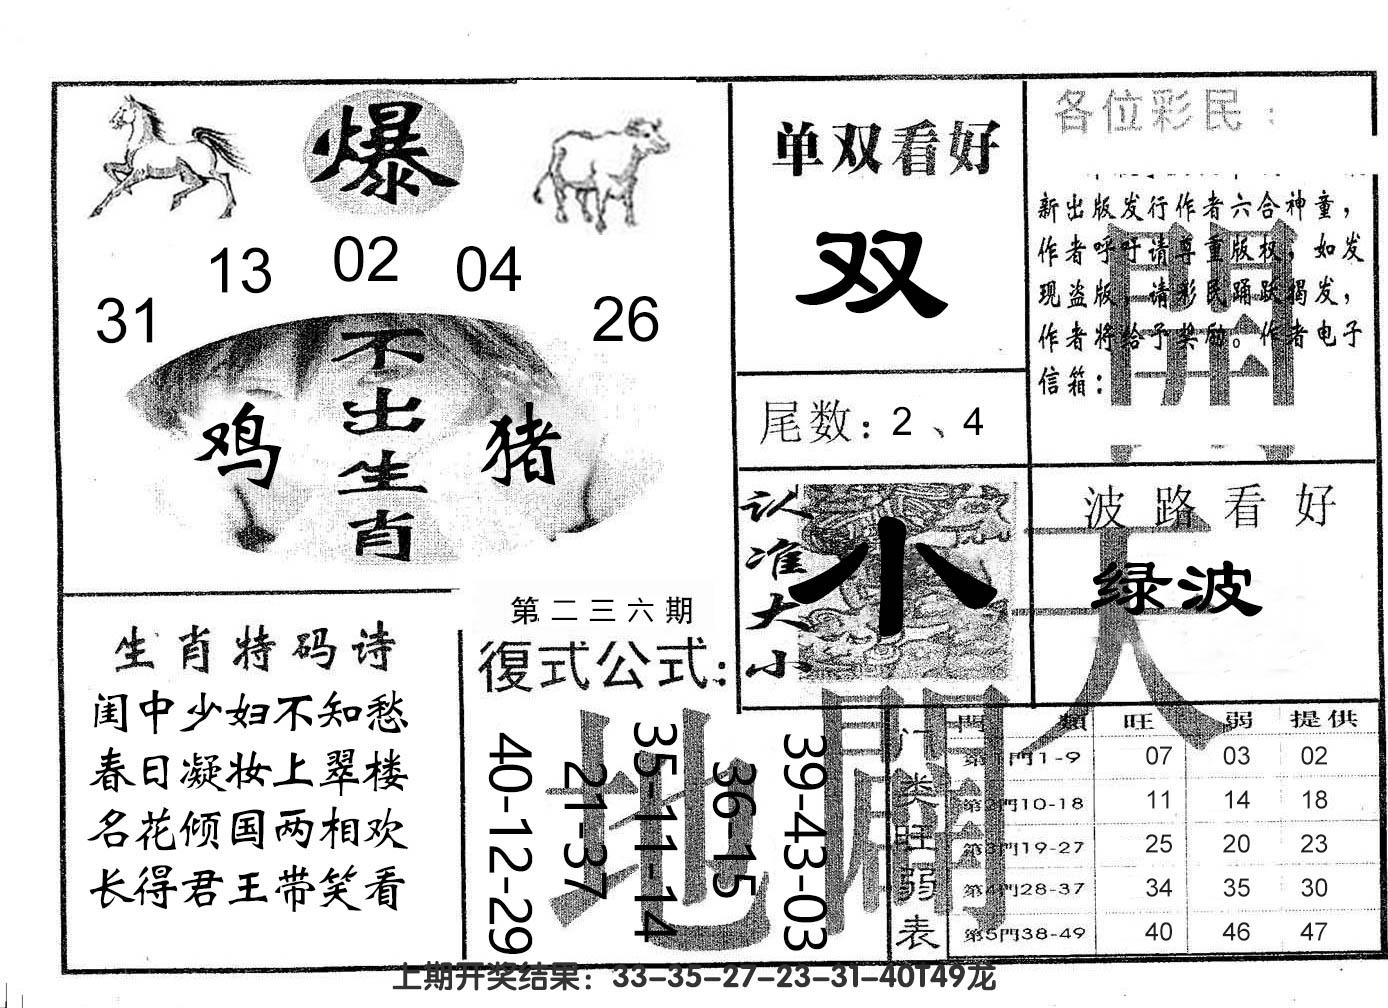 爆
13 02 04
31 26
不出生肖
鸡 猪
单双看好
双
尾数：2、4
各位彩民：
新出版发行作者六合神童，
作者呼吁请尊重版权，如发
现盗版，请彩民踊跃揭发，
作者将给予奖励。作者电子
信箱：
開
认准大小
小
波路看好
绿波
天
生肖特码诗
闺中少妇不知愁
春日凝妆上翠楼
名花倾国两相欢
长得君王带笑看
第二三六期
復式公式：
40-12-29
21-37
35-11-14
36-15
39-43-03
地
门类旺弱表
門 類 旺 弱 提供
第1門1-9 07 03 02
第2門10-18 11 14 18
第3門19-27 25 20 23
第4門28-37 34 35 30
第5門38-49 40 46 47
上期开奖结果：33-35-27-23-31-40T49龙